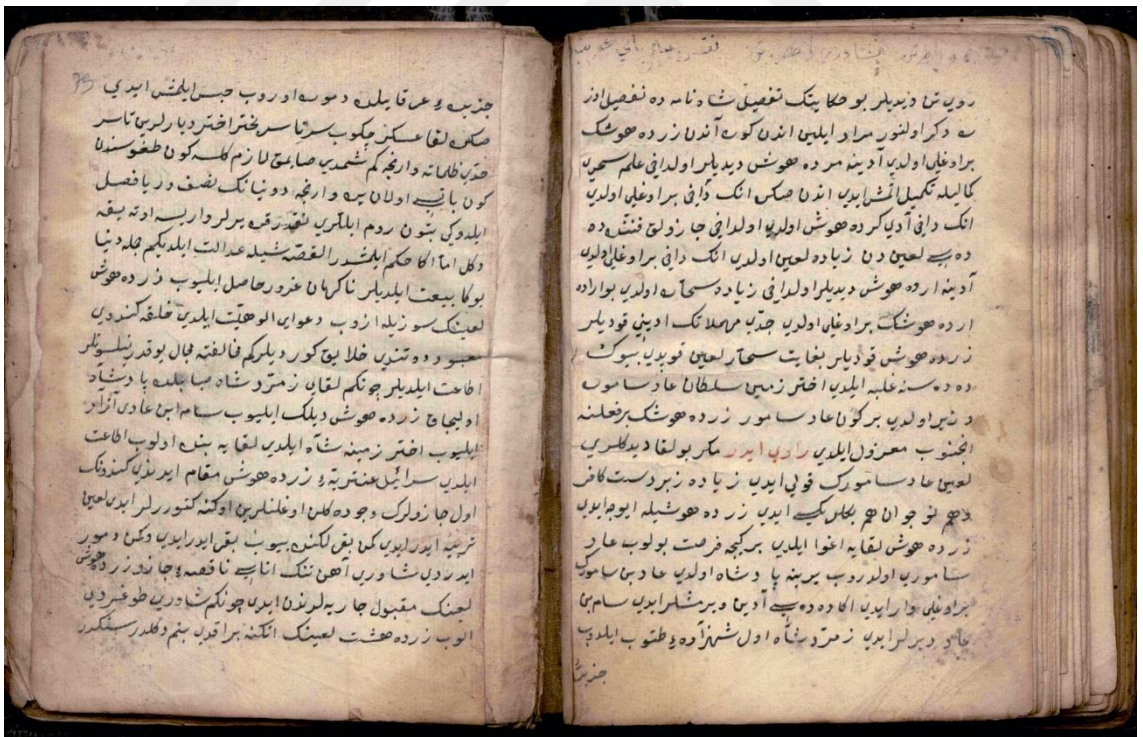 روین تن دیدیلر بو حکایتک تفصیلی شاه نامه ده تفصیل اوزر
ه ذکر اولنور مراد ایلین اندن کوره آندن زرده هوشک
بر اوغلی اولدی آدینه مرده هوش دیدیلر اولداقی علم سحری
کمالیله تکمیل ایتمش ایدی اندن صکره انک داقی بر اوغلی اولدی
انک داقی آدی کرده هوش اولدی اولداقی جازولق فننده ده
ده سی لعین دن زیاده لعین اولدی انک داقی بر اوغلی اولدی
آدینه ارده هوش دیدیلر اولداقی زیاده سحاره اولدی بواراده
ارده هوشک بر اوغلی اولدی جدی مهملاتک ادینی قودیلر
زرده هوش قودیلر بغایت سحار لعین قوپدی بیوک
ده ده سنه غلبه ایلدی اختر زمین سلطان عاد ساموره
وزیر اولدی برکون عاد سامور زرده هوشک بر فعلنه
انجنوب معزول ایلدی راوی ایدر مکر بو لقا دیدکلری
لعین عاد سامورک قولی ایدی زیاده زبردست کافر
وهم نوجوان هم بکلر بکی ایدی زرده هوشیله
زرده هوش لقایه اغوا ایلدی بر کیجه فرصت بولوب عاد
سامورن اولدروب یرینه پادشاه اولدی عاد بن سامورک
بر اوغلی وار ایدی اکا ده ده سی آدین ویرمشلر ایدی سام بن
عاد دیرلر ایدی زمرد شاه اول شهزاده یی طتوب ایلدوب
جزیره
79
جزیره عرقا یلده دموره اوروب حبس ایلمش ایدی
صکره لقا عسکر چکوب سرتاسر بختر اختر دیارلرین تاسر
حدی ظلماته وارنجه کم شمدی صایمق لازم کلسه کون طغوسندن
کون باتیسی اولان یره وارنجه دونیانک نصف در یا فصل
ایلدوکی بتون روم ایللری نقدر قره یرلر واریسه اوته یقه
دکل اما اکا حکم ایلمشدر القصه شیله عدالت ایلدیکم جمله دنیا
بوکا بیعت ایلدیلر ناکهان غرور حاصل ایلیوب زرده هوش
لعینک سوزیله ازوب دعوای الوهیت ایلدی خلقه کندوی
معبود ده تندی خلایق کوردیلرکم مخالفته مجال یوقدر
اطاعت ایلدیلر چونکم لقای زمرد شاه پادشاه
اولیجاق زرده هوش دیلک ایلیوب سام ابن عادی آزاد
ایلیوب اختر زمینه شاه ایلدی لقایه بنده اولوب اطاعت
ایلدی زرده هوش مقام ایدرندی کندونک
اول جازولرک وجوده کلن اوغلنلرین اوکنه کتوررلر ایدی لعین
تربیه ایدر ایدی کمن یق لکنده بیوب یقی ایدر ایدی وکمن دمور
ایدردی شاورن آهن تنک اناسی ناقصه جازو زرده هوشی
لعینک مقبول جاریه لرندن ایدی چونکم شاورن طوغیردی
الوب زرده هشت لعینک اتکنه براقدی بنم دکلدر سنکدر